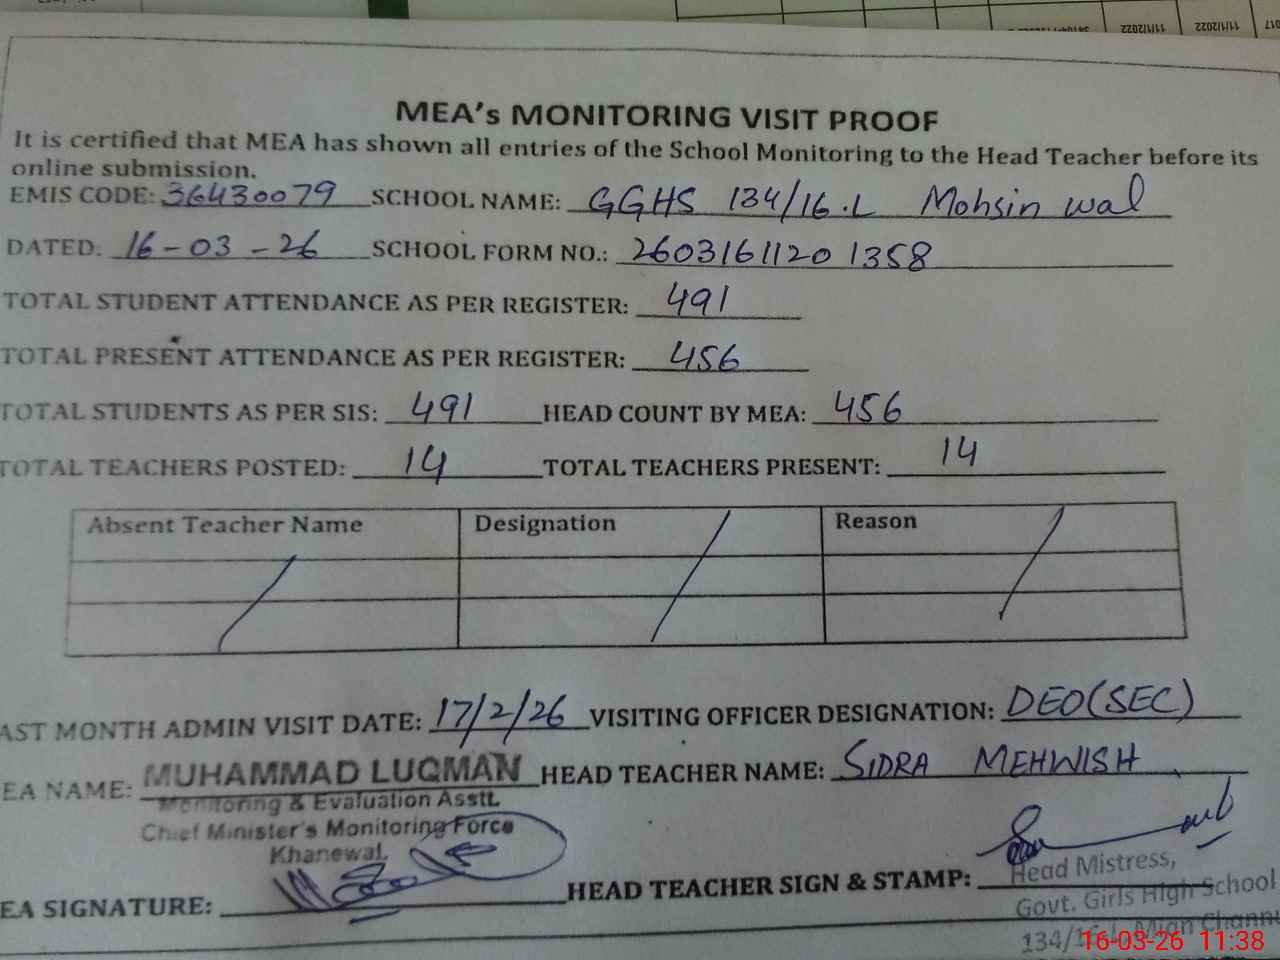 11/1/2022 11/1/2022
MEA's MONITORING VISIT PROOF
It is certified that MEA has shown all entries of the School Monitoring to the Head Teacher before its
online submission.
EMIS CODE: 36430079 SCHOOL NAME: GGHS 134/16.L Mohsin wal
DATED: 16-03-26 SCHOOL FORM NO.: 26031611201358
TOTAL STUDENT ATTENDANCE AS PER REGISTER: 491
TOTAL PRESENT ATTENDANCE AS PER REGISTER: 456
TOTAL STUDENTS AS PER SIS: 491 HEAD COUNT BY MEA: 456
TOTAL TEACHERS POSTED: 14 TOTAL TEACHERS PRESENT: 14
Absent Teacher Name Designation Reason
AST MONTH ADMIN VISIT DATE: 17/2/26 VISITING OFFICER DESIGNATION: DEO(SEC)
EA NAME: MUHAMMAD LUQMAN HEAD TEACHER NAME: SIDRA MEHWISH
Monitoring & Evaluation Asstt.
Chief Minister's Monitoring Force
Khanewal.
EA SIGNATURE: HEAD TEACHER SIGN & STAMP:
Head Mistress,
Govt. Girls High School
134/16.L Mian Channu
16-03-26 11:38